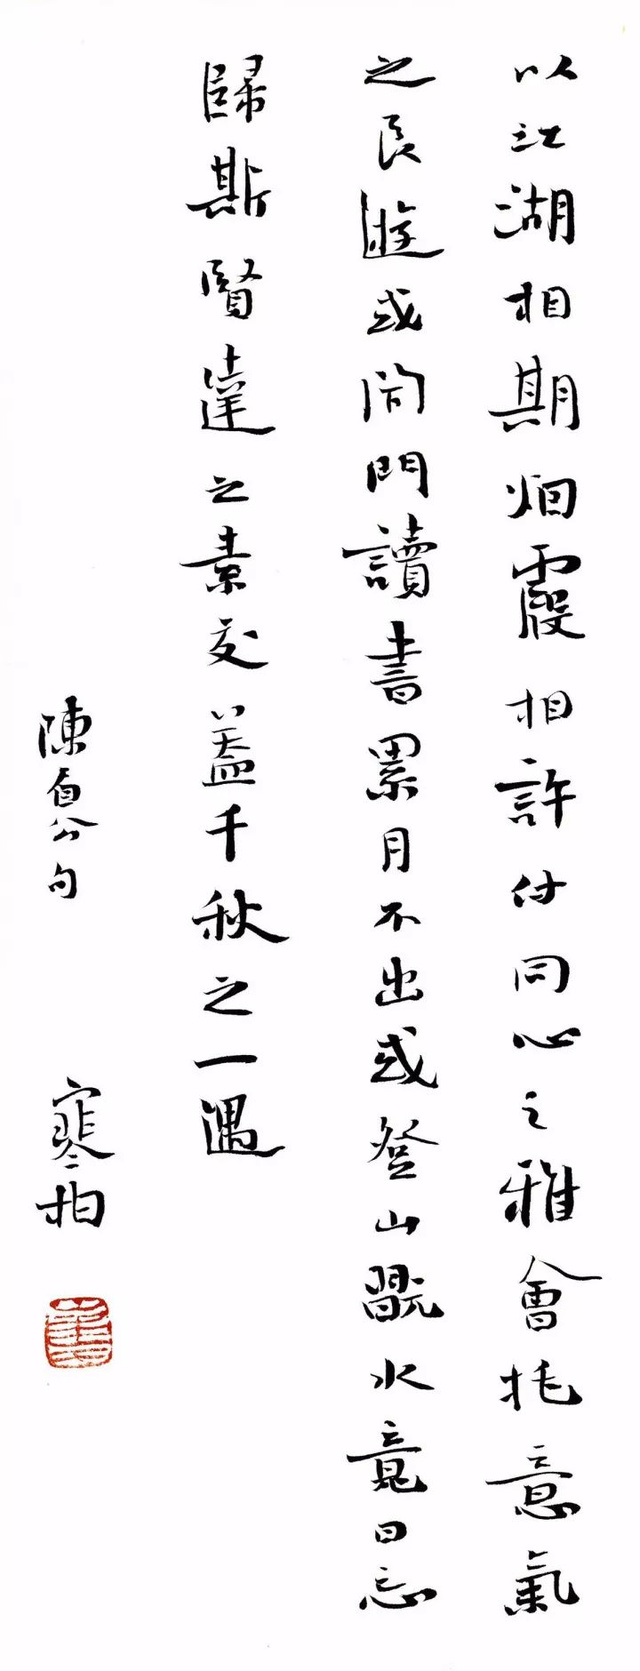 以江湖相期烟霞相許付同心之雅會托意氣
之良遊或閇門讀書累月不出或登山翫水竟日忘
歸斯賢達之素交蓋千秋之一遇
陳眉公句 寒柏